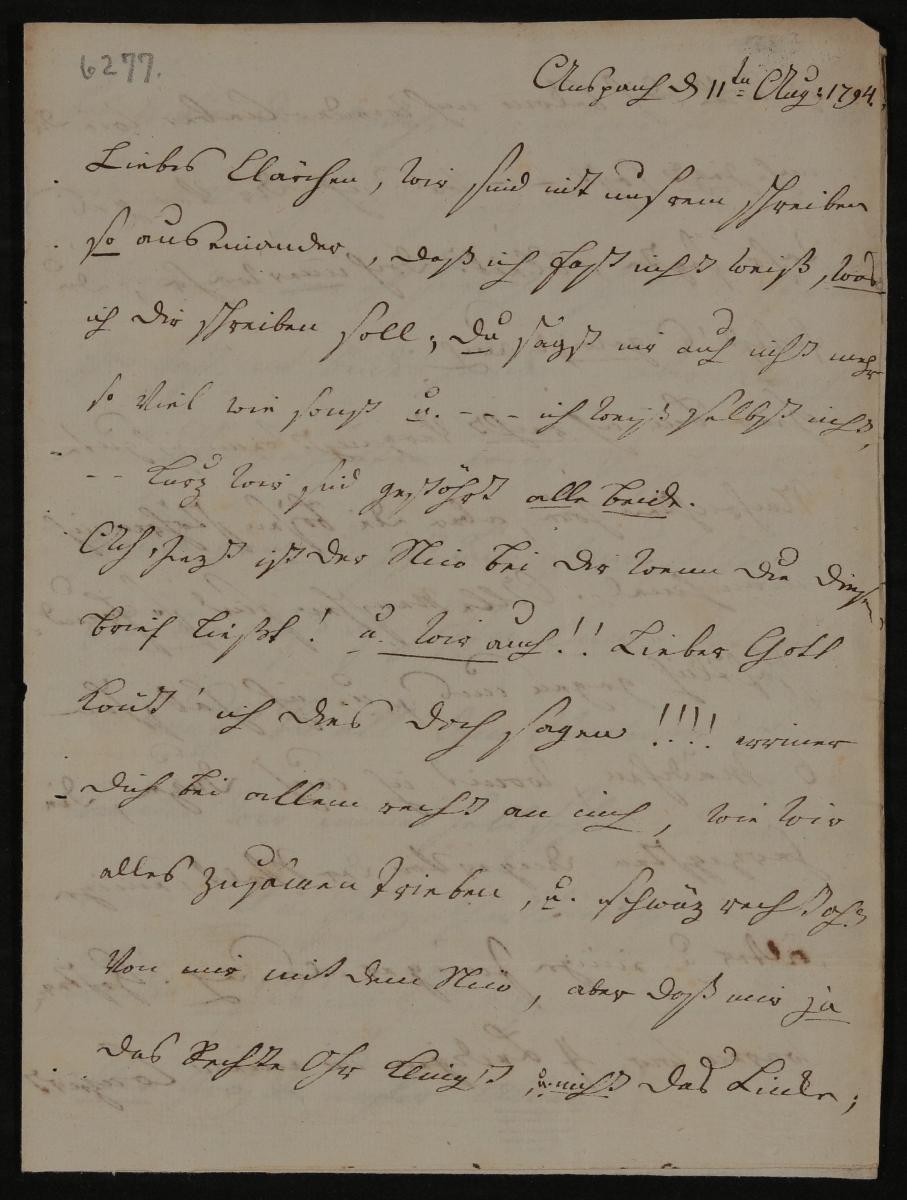 6277.
Anspach d 11ten Aug: 1794.
Liebes Clärchen, wir sind mit unsrem schreiben
so auseinander, daß ich fast nicht weiß, was
ich dir schreiben soll; du sagst mir auch nicht mehr
so viel wie sonst u. - - - ich weiß selbst nicht,
- - kurz wir sind gestöhrt alle beide.
Ach jezt ist der Nuo bei dir wenn du diesen
brief ließt! u. wir auch!! Lieber Gott
könt' ich dies doch sagen!!!! erriner
dich bei allem recht an mich, wie wir
alles zusamen trieben, u. schwäz recht oft
von mir mit dem Nuo, aber daß mir ja
das Rechte Ohr klingt, u. nicht das Linke;